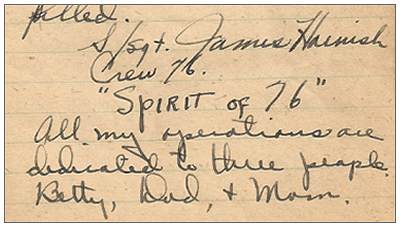 killed.
S/sgt. James Hainish
Crew 76.
"Spirit of 76"
All my operations are
dedicated to three people.
Betty, Dad, + Mom.